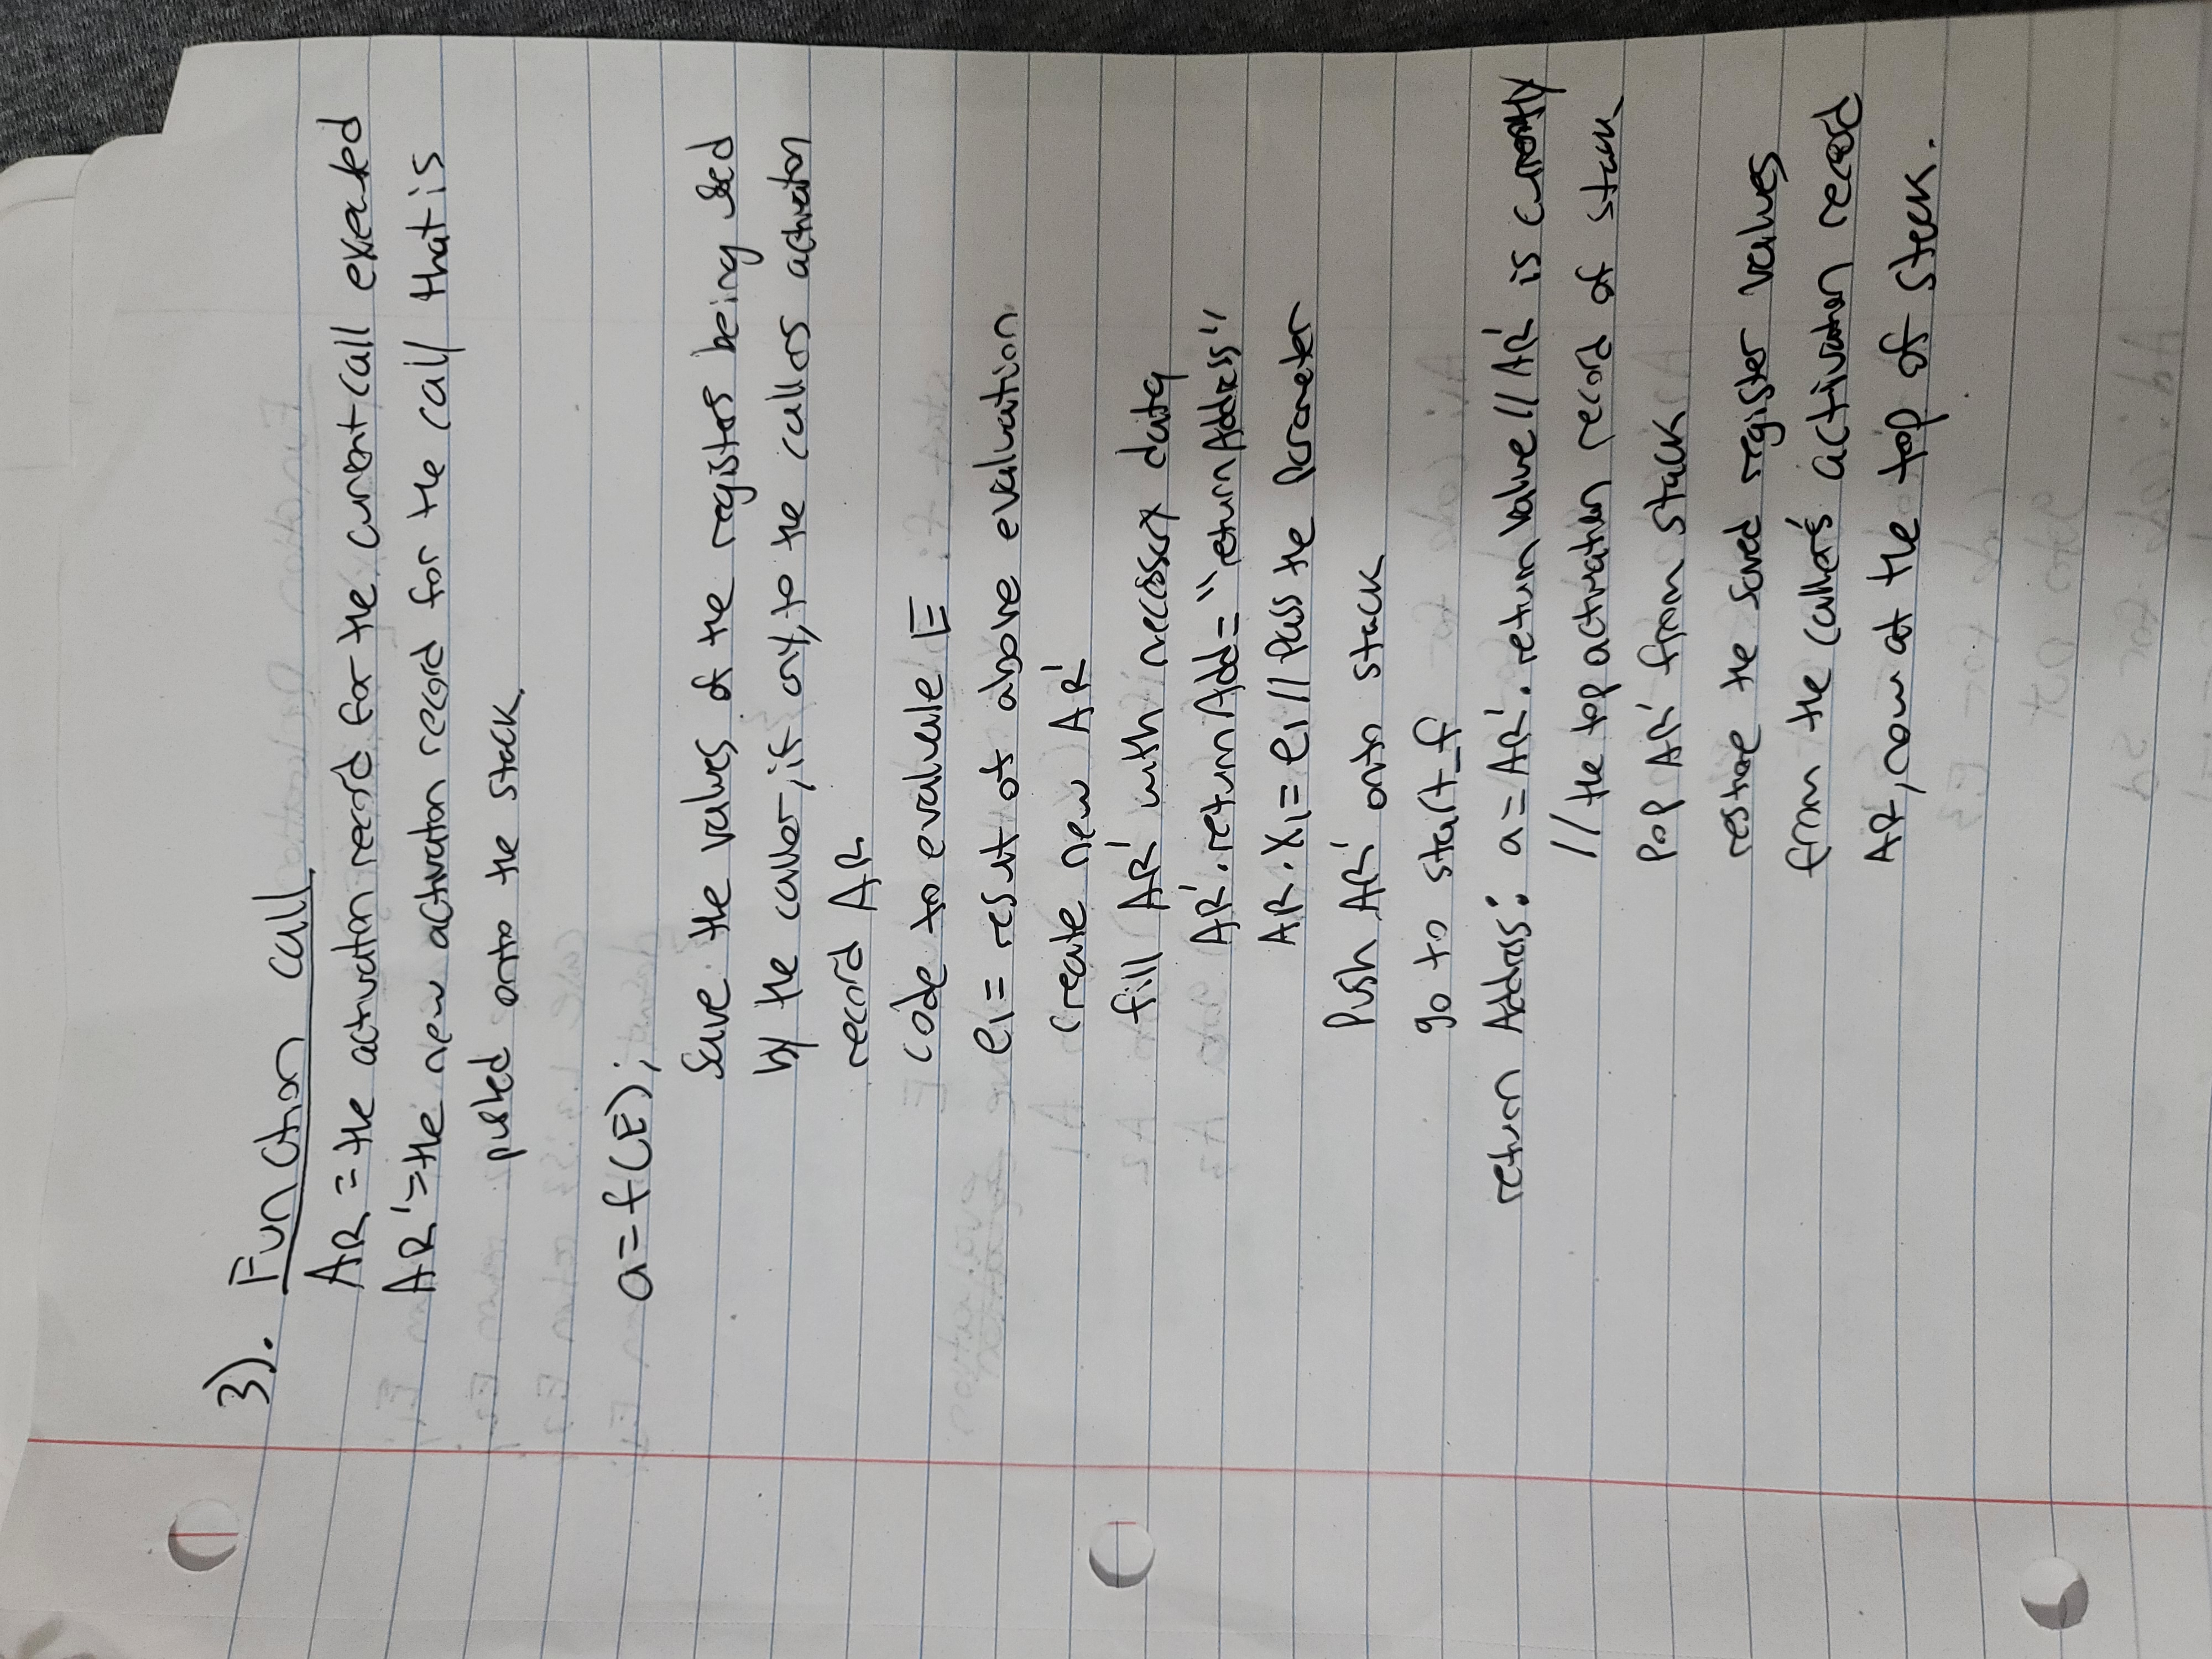 3). Function call
AR = the activation record for the current call executed
AR' = the new activation record for the call that is
pushed onto the stack.
a=f(E);
Save the values of the registers being used
by the caller, if any, to the callers activation
record AR
code to evaluate E
e1 = result of above evaluation
create new AR'
fill AR' with necessary data
AR'.returnAdd = "returnAddress"
AR.X1 = e1 // Pass the Parameter
Push AR' onto stack
go to start_f
return Address: a = AR'.return Value // AR' is currently
// the top activation record of stack
Pop AR' from stack
restore the saved register values
from the caller's activation record
AR, now at the top of stack.